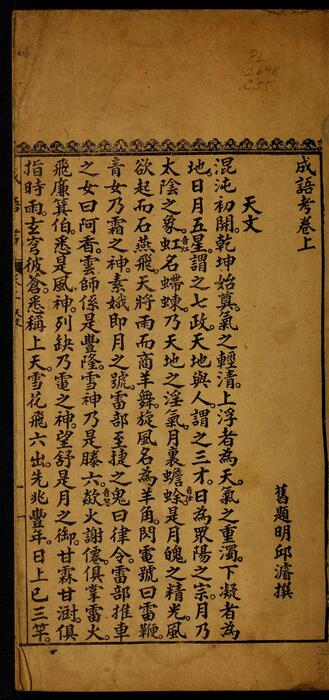 PL
2698
.C55
成語考卷上
舊題明邱濬撰
天文
混沌初開。乾坤始奠。氣之輕清。上浮者為天。氣之重濁。下凝者為
地。日月五星。謂之七政。天地與人。謂之三才。日為眾陽之宗。月乃
太陰之象。虹名螮蝀。乃天地之淫氣。月裏蟾蜍。是月魄之精光。風
欲起而石燕飛。天將雨而商羊舞。旋風名為羊角。閃電號曰雷鞭。
青女乃霜之神。素娥即月之號。雷部至捷之鬼曰律令。雷部推車
之女曰阿香。雲師係是豐隆。雪神乃是滕六。欻火謝僊。俱掌雷火。
飛廉箕伯。悉是風神。列缺乃電之神。望舒是月之御。甘霖甘澍。俱
指時雨。玄穹彼蒼。悉稱上天。雪花飛六出。先兆豐年。日上已三竿。